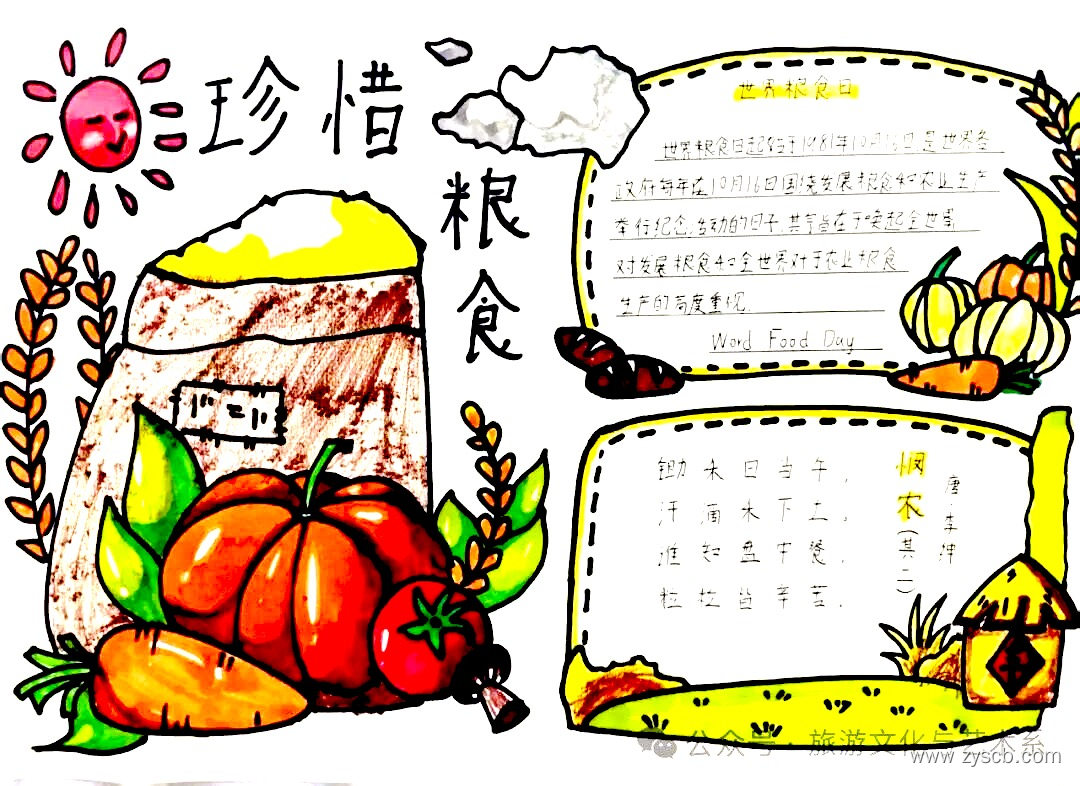 珍惜
粮食
世界粮食日
世界粮食日起始于1981年10月16日,是世界各
政府每年在10月16日围绕发展粮食和农业生产
举行纪念活动的日子,其宗旨在于唤起全世界
对发展粮食和全世界对于农业粮食
生产的高度重视.
Word Food Day
悯农(其二)
唐·李绅
锄禾日当午,
汗滴禾下土。
谁知盘中餐,
粒粒皆辛苦.
公众号 · 旅游文化与艺术系
www.zyscb.com